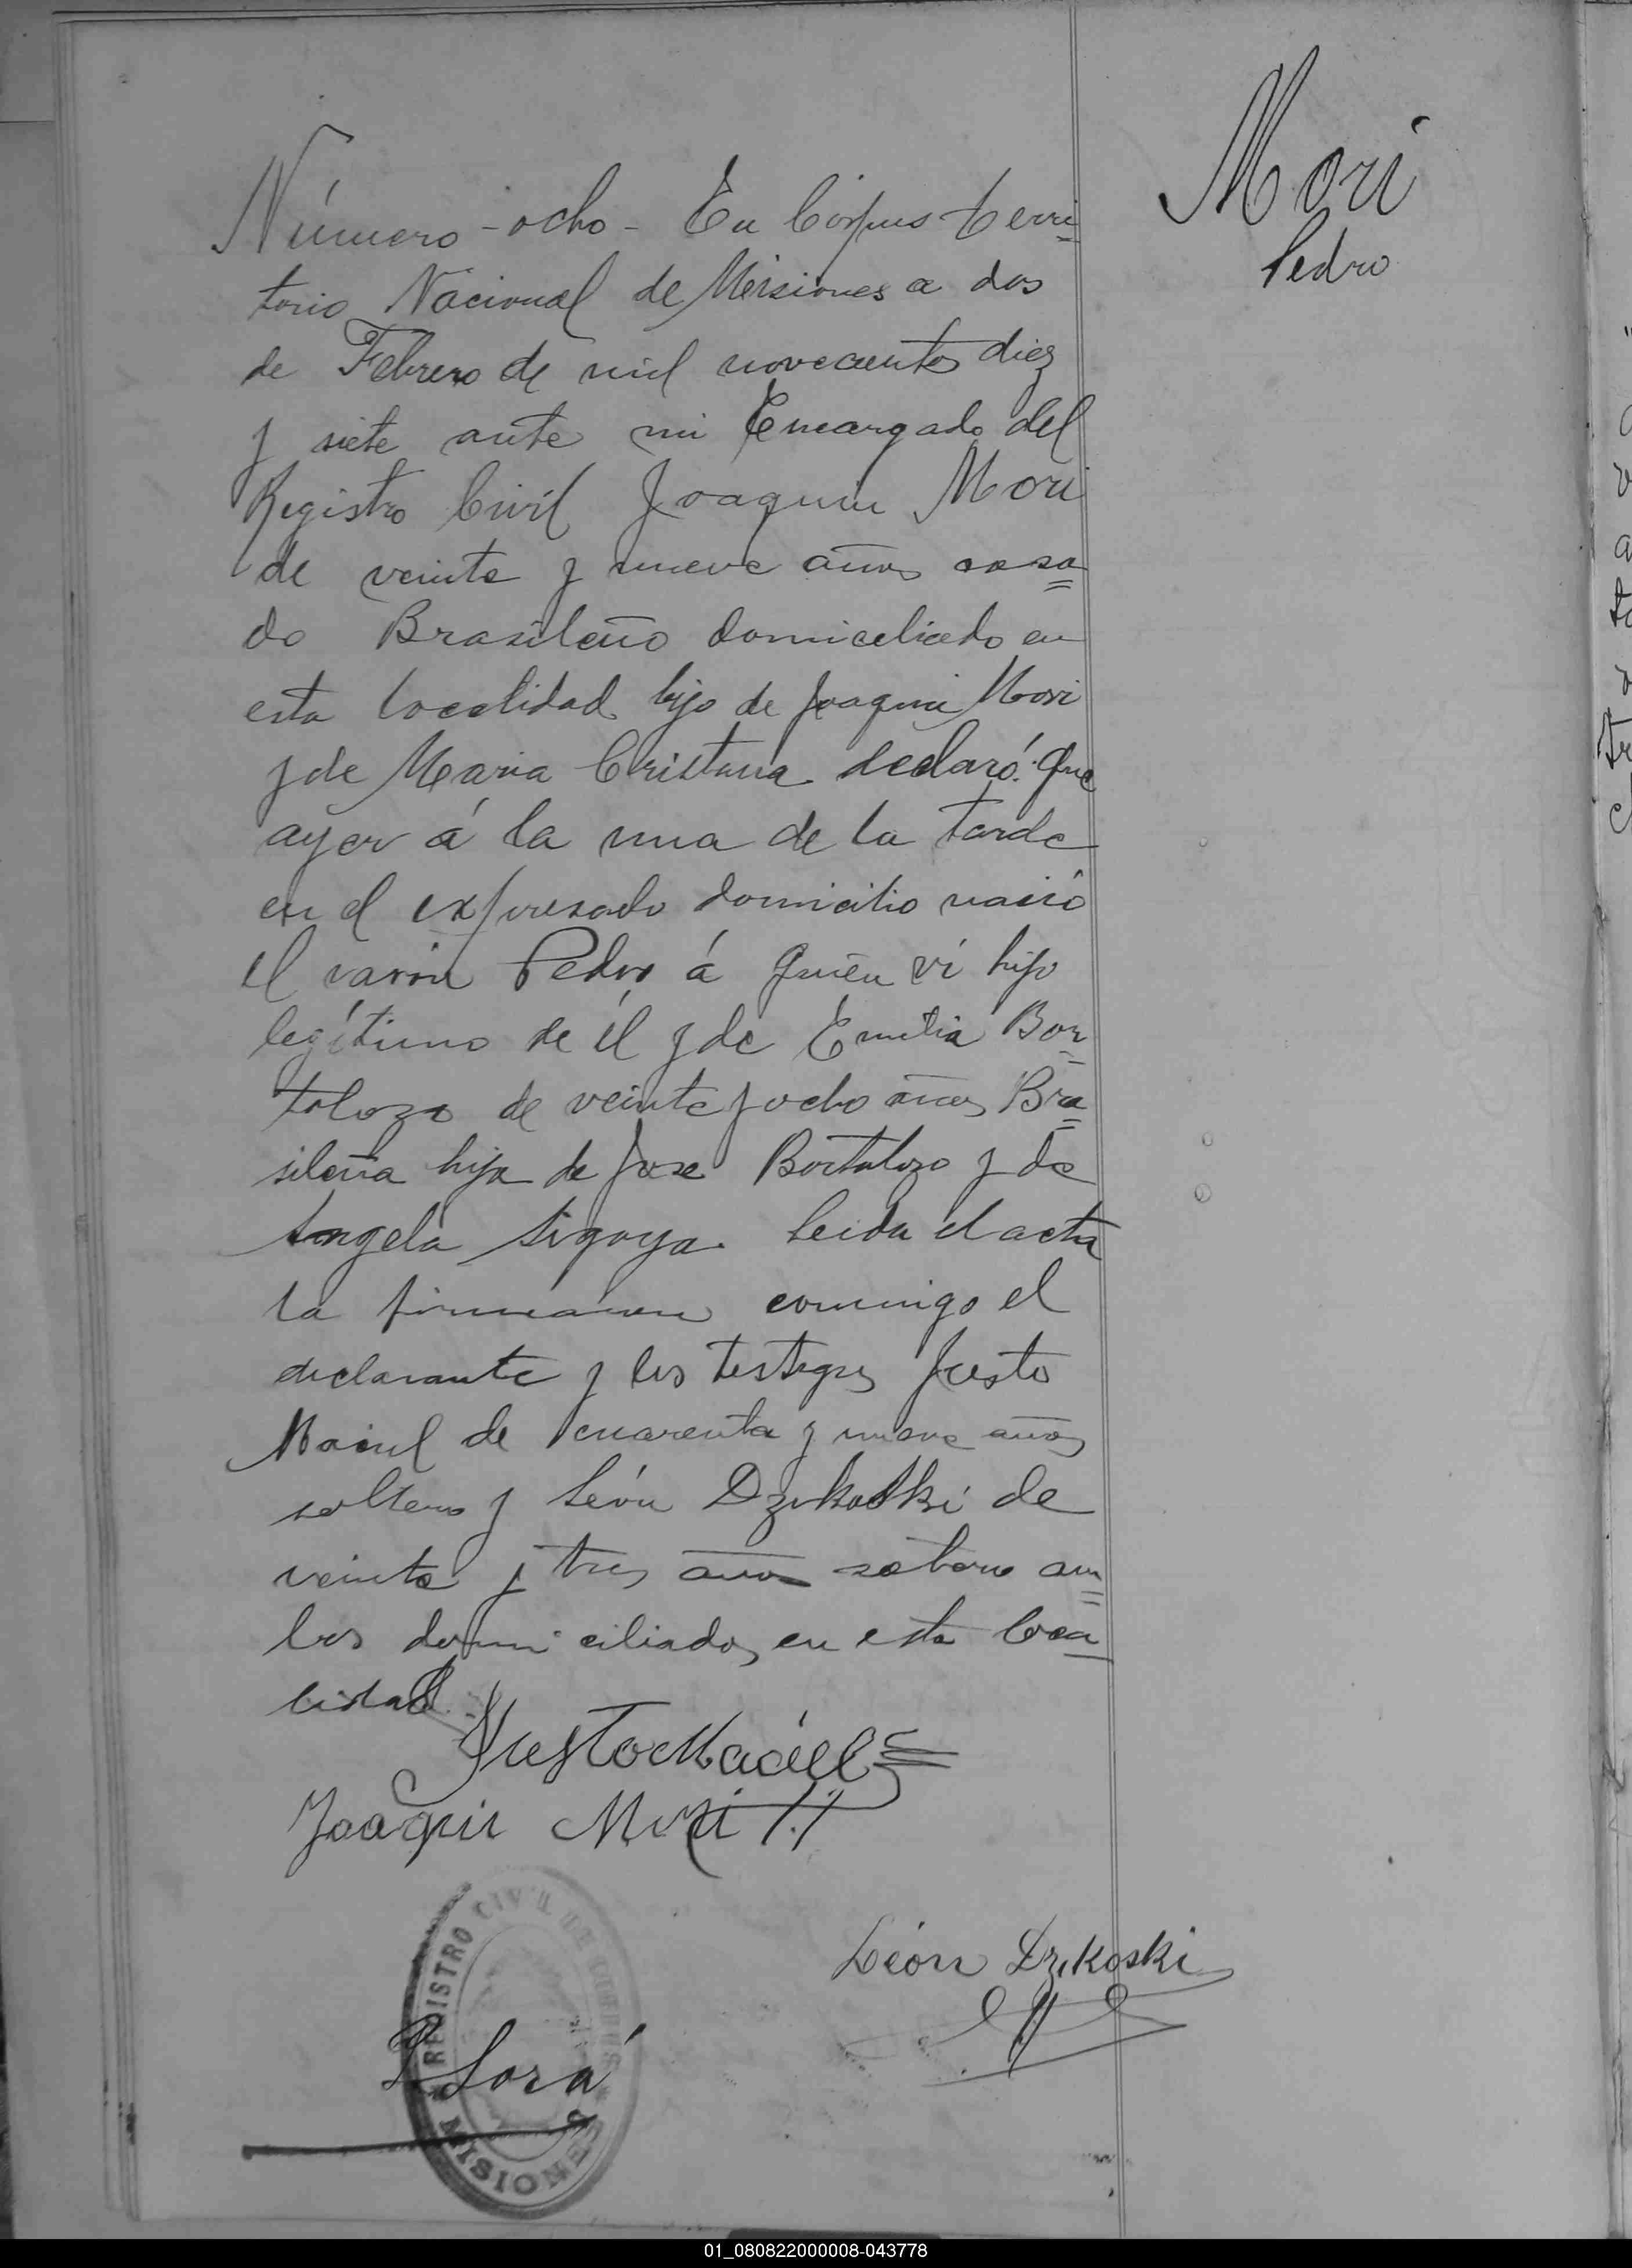 Mori
Pedro
Número - ocho - En Corpus terri=
torio Nacional de Misiones a dos
de Febrero de mil novecientos diez
y siete ante mi Encargado del
Registro Civil Joaquin Mori
de veinte y nueve años casa=
do Brasileño domiciliado en
esta localidad hijo de Joaquin Mori
y de Maria Cristina declaró: Que
ayer á la una de la tarde
en el expresado domicilio nació
el varón Pedro á quien vi hijo
legítimo de él y de Emilia Bor=
tolozo de veinte y ocho años Bra=
sileña hija de Jose Bortolozo y de
Angela Leida el acta
la firmaron conmigo el
declarante y los testigos Justo
Maciel de cuarenta y nueve años
soltero y León Dzikoski de
veinte y tres años soltero am=
bos domiciliados en esta loca
lidad
Justo Maciel
Joaquin Mori
León Dzikoski
REGISTRO CIVIL DE CORPUS
MISIONES